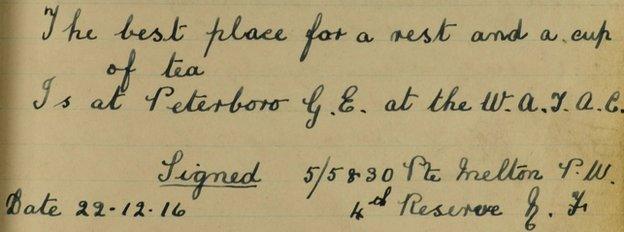 The best place for a rest and a cup
of tea
Is at Peterboro G.E. at the W.A.T.A.C.
Signed 5/5830 Pte Melton P.W.
Date 22-12-16 4th Reserve